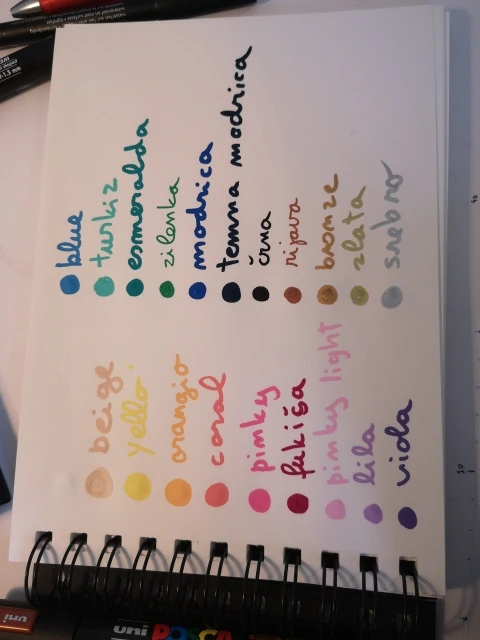 beige
yello
orangio
coral
pinky
fukiša
pinky light
lila
viola
blue
turkiz
esmeralda
zilenka
modrica
temna modrica
črna
rijava
bronze
zlata
srebro
uni
uni POSCA